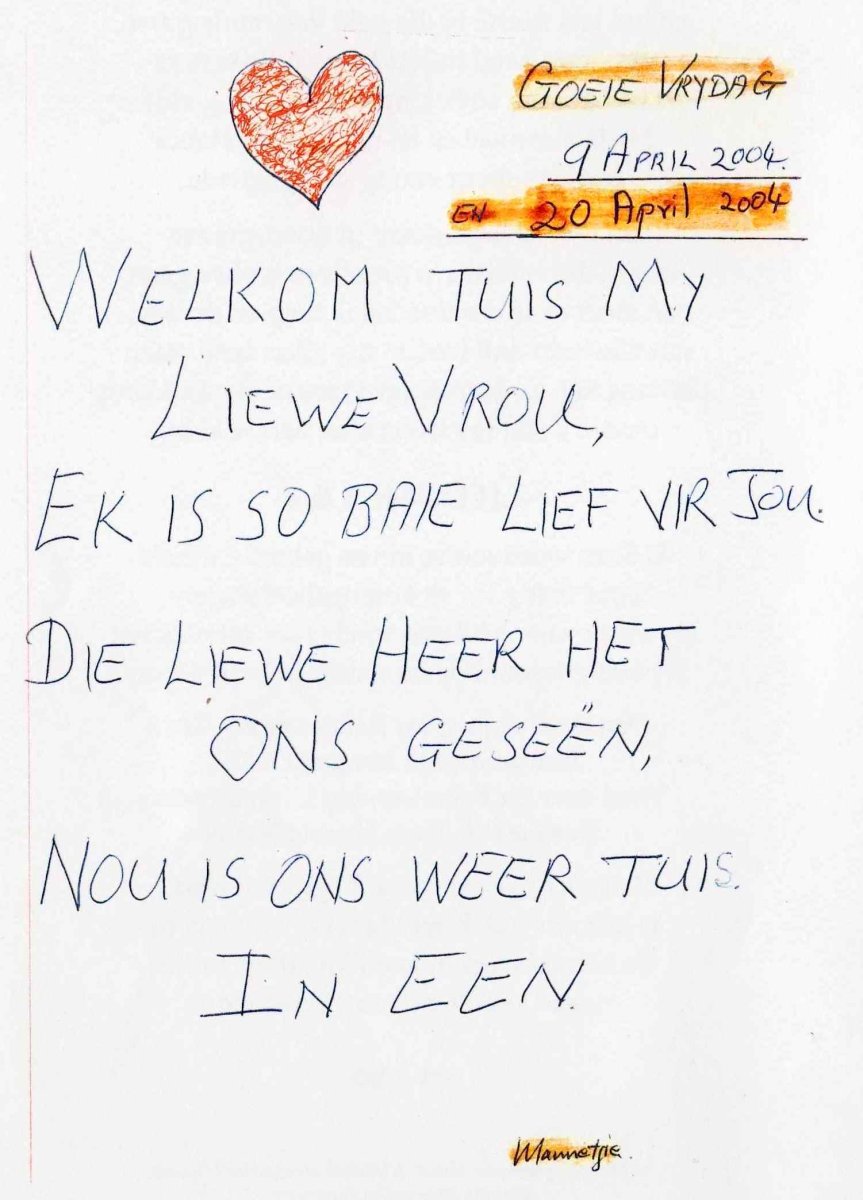 GOEIE VRYDAG
9 APRIL 2004.
EN 20 April 2004
WELKOM TUIS MY
LIEWE VROU,
EK IS SO BAIE LIEF VIR JOU.
DIE LIEWE HEER HET
ONS GESEËN,
NOU IS ONS WEER TUIS.
IN EEN.
Mannetjie.